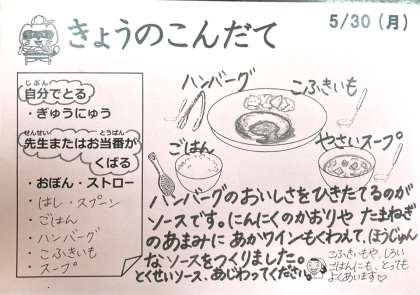 きょうのこんだて
5/30（月）
じぶん
自分でとる
・ぎゅうにゅう
せんせい とうばん
先生またはお当番が
くばる
・おぼん・ストロー
・はし・スプーン
・ごはん
・ハンバーグ
・こふきいも
・スープ
ハンバーグ
こふきいも
ごはん
やさいスープ
ハンバーグのおいしさをひきたてるのが
ソースです。にんにくのかおりや たまねぎ
のあまみに あかワインもくわえて、ほうじゅん
なソースをつくりました。
とくせいソース、あじわってください。
こふきいもや、しろい
ごはんにも、とっても
よくあいます♡